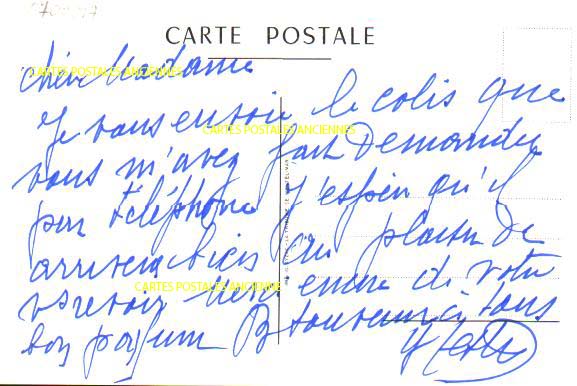 CARTE POSTALE
CARTES POSTALES ANCIENNES
chère Madame
Je vous envoie le colis que
CARTES POSTALES ANCIENNES
vous m'avez fait Demander
par téléphone J'espère qu'il
arrivera bien au plaisir de
CARTES POSTALES ANCIENNE
vs revoir merci encore de votre
bon parfum B souvenir à tous